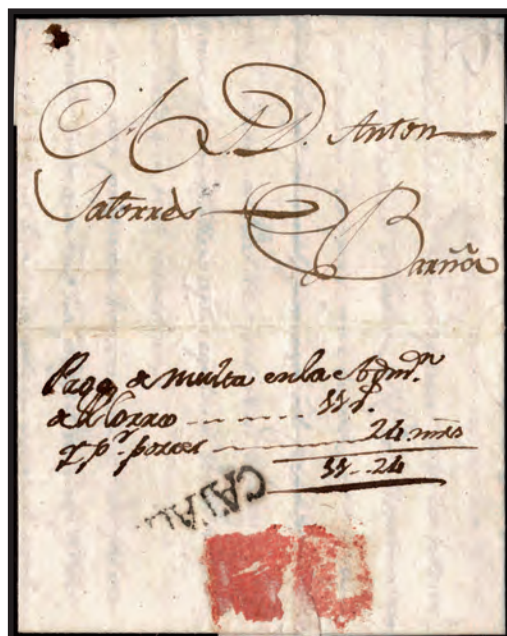 D. Anton
Satorres
Barña
Pago de multa en la Admn.
de Correo 11 r.
y pr. portes 24 mrs
11..24
CATAL